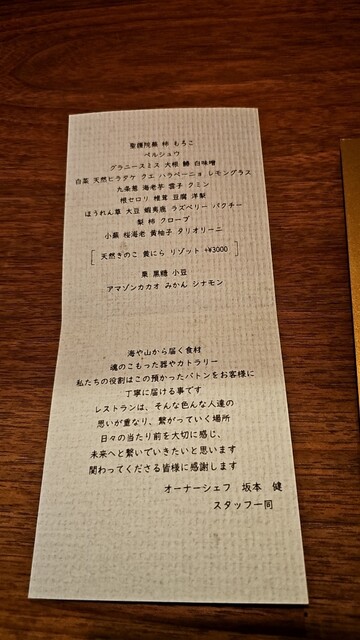 聖護院蕪 柿 もろこ
ペルシュウ
グラニースミス 大根 鰆 白味噌
白菜 天然ヒラタケ クエ ハラペーニョ レモングラス
九条葱 海老芋 雲子 クミン
根セロリ 椎茸 豆腐 洋梨
ほうれん草 大豆 蝦夷鹿 ラズベリー パクチー
梨 柿 クローブ
小蕪 桜海老 黄柚子 タリオリーニ
[ 天然きのこ 黄にら リゾット +¥3000 ]
栗 黒糖 小豆
アマゾンカカオ みかん シナモン
海や山から届く食材
魂のこもった器やカトラリー
私たちの役割はこの預かったバトンをお客様に
丁寧に届ける事です
レストランは、そんな色んな人達の
思いが重なり、繋がっていく場所
日々の当たり前を大切に感じ、
未来へと繋いでいきたいと思います
関わってくださる皆様に感謝します
オーナーシェフ 坂本 健
スタッフ一同